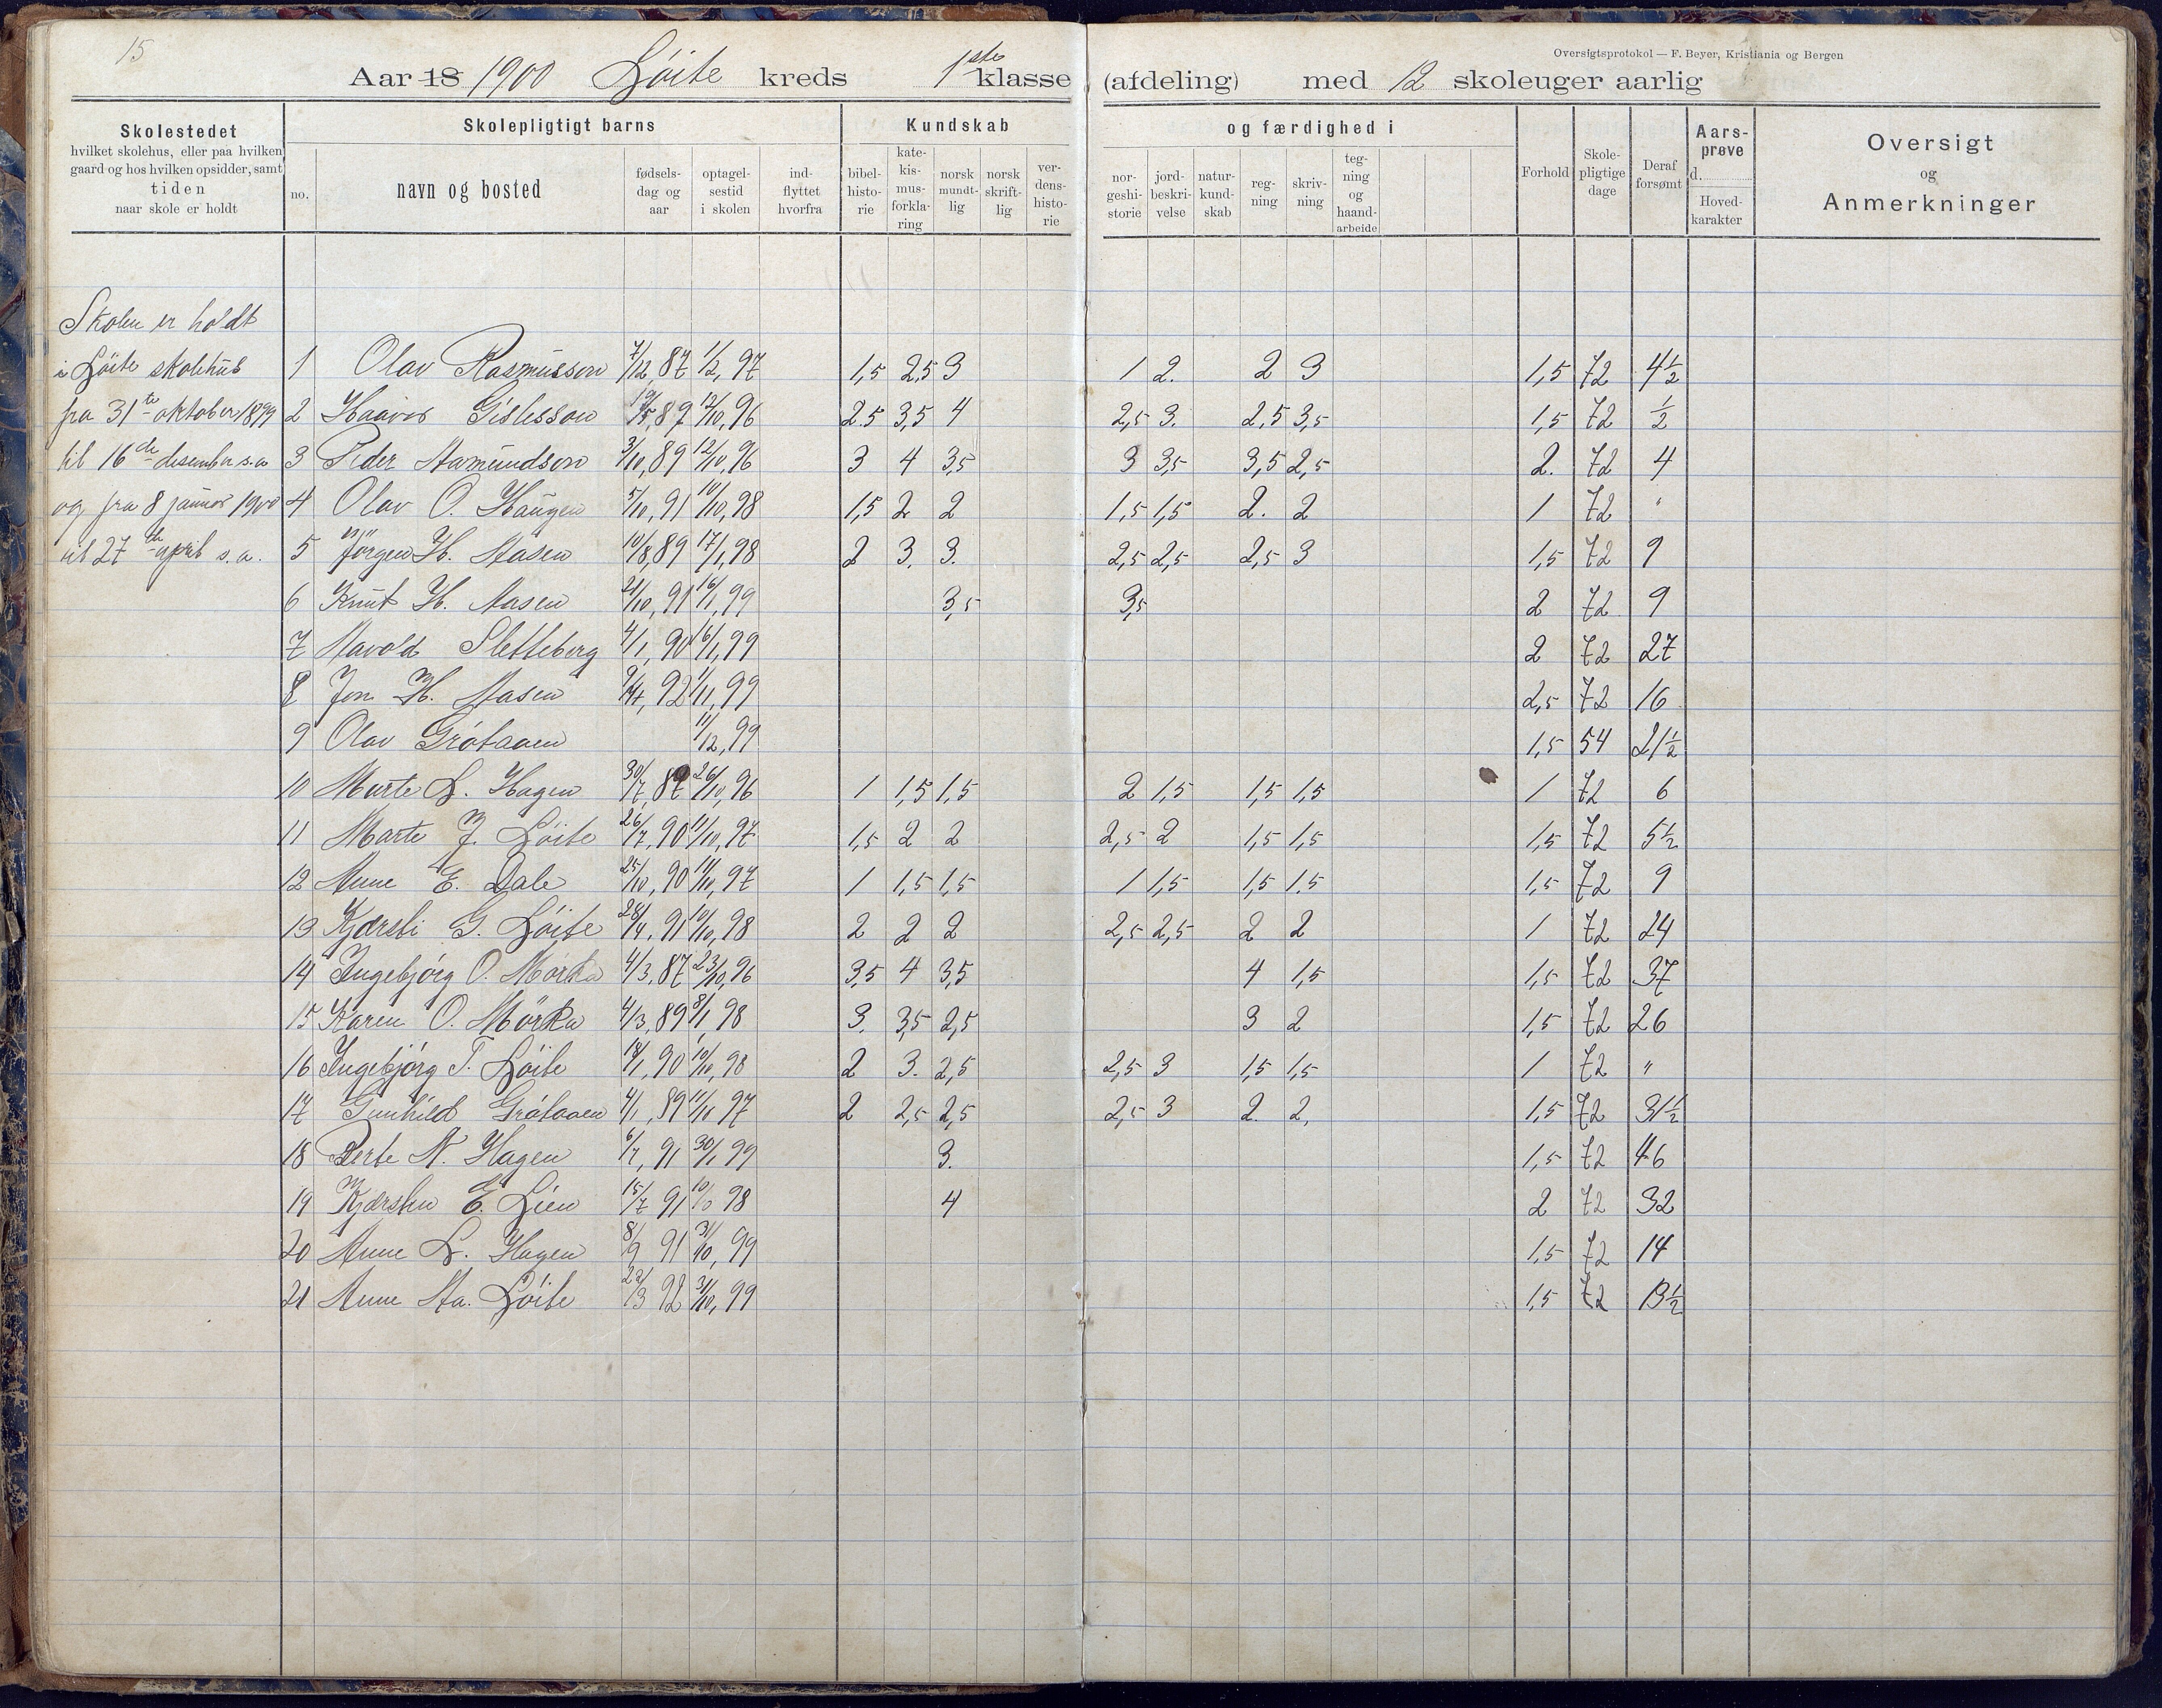 15
Oversigtsprotokol — F. Beyer, Kristiania og Bergen
Aar 18 1900 Löite kreds 1ste klasse (afdeling) med 12 skoleuger aarlig
Skolestedet
hvilket skolehus, eller paa hvilken
gaard og hos hvilken opsidder, samt
tiden
naar skole er holdt
Skolepligtigt barns
no.
navn og bosted
fødsels-
dag og
aar
optagel-
sestid
i skolen
ind-
flyttet
hvorfra
Kundskab
bibel-
histo-
rie
kate-
kis-
mus-
forkla-
ring
norsk
mundt-
lig
norsk
skrift-
lig
ver-
dens-
histo-
rie
og færdighed i
nor-
geshi-
storie
jord-
beskri-
velse
natur-
kund-
skab
reg-
ning
skriv-
ning
teg-
ning
og
haand-
arbeide
Forhold
Skole-
pligtige
dage
Deraf
forsømt
Aars-
prøve
d.
Hoved-
karakter
Oversigt
og
Anmerkninger
Skolen er holdt
i Löite skolehus
fra 31te oktober 1899
til 16de desember s.a
og fra 8 januar 1900
til 27de april s.a.
1 Olav Rasmusson 7/12, 87 1/2, 97 1,5 2,5 3 1 2. 2 3 1,5 72 4½
2 Haavor Gislesson 19/5, 87 12/10, 96 2.5 3,5 4 2,5 3. 2,5 3,5 1,5 72 ½
3 Peder Aamundson 3/10, 89 12/10, 96 3 4 3,5 3 3,5 3,5 2,5 2. 72 4
4 Olav O. Haugen 5/10, 91 10/10, 98 1,5 2 2 1,5 1,5 2. 2 1 72 "
5 Jörgen H. Aasen 10/8, 89 17/1, 98 2 3. 3. 2,5 2,5 2,5 3 1,5 72 9
6 Knut H. Aasen 21/10, 91 16/1, 99 3,5 3,5 2 72 9
7 Aavold Sletteberg 4/1, 90 16/1, 99 2 72 27
8 Jon H. Aasen 92 1/11, 99 2,5 72 16
9 Olav Grötaaen 11/12, 99 1,5 54 21½
10 Marte L. Hagen 30/7, 87 26/10, 96 1 1,5 1,5 2 1,5 1,5 1,5 1 72 6
11 Marte J. Löite 26/7, 90 11/10, 97 1,5 2 2 2,5 2 1,5 1,5 1,5 72 5½
12 Anne E. Dale 25/10, 90 11/10, 97 1 1,5 1,5 1 1,5 1,5 1.5 1,5 72 9
13 Kjersti G. Löite 28/4, 91 10/10, 98 2 2 2 2,5 2,5 2 2 1 72 24
14 Ingebjörg O. Mörka 4/3, 87 23/10, 96 3,5 4 3,5 4 1,5 1,5 72 37
15 Karen O. Mörka 4/3, 89 8/1 98 3. 3,5 2,5 3 2 1,5 72 26
16 Ingebjörg T. Löite 18/1, 90 10/10, 98 2 3. 2,5 2,5 3 1,5 1,5 1 72 "
17 Gunhild Grötaaen 4/1, 89 11/10 97 2 2,5 2,5 2,5 3 2. 2, 1,5 72 31½
18 Berte N. Hagen 6/7, 91 30/1 99 3. 1,5 72 46
19 Kjersten E. Lien 15/7 91 98 4 2 72 32
20 Anne L. Hagen 8/9 91 31/10, 99 1,5 72 14
21 Anne Aa. Löite 22/3 92 31/10, 99 1,5 72 13½